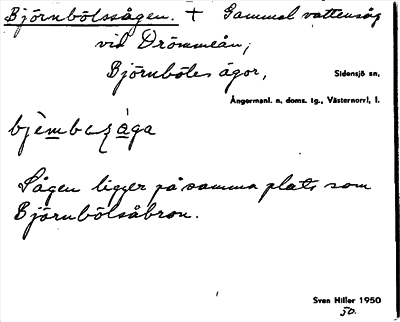 Björnbölssågen. + Gammal vattensåg
vid Drömmeån,
Björnböles ägor,
Sidensjö sn,
Ångermanl. n. doms. tg., Västernorrl. l.
Sågen ligger på samma plats som
Björnbölsåbron.
Sven Hiller 1950
50.